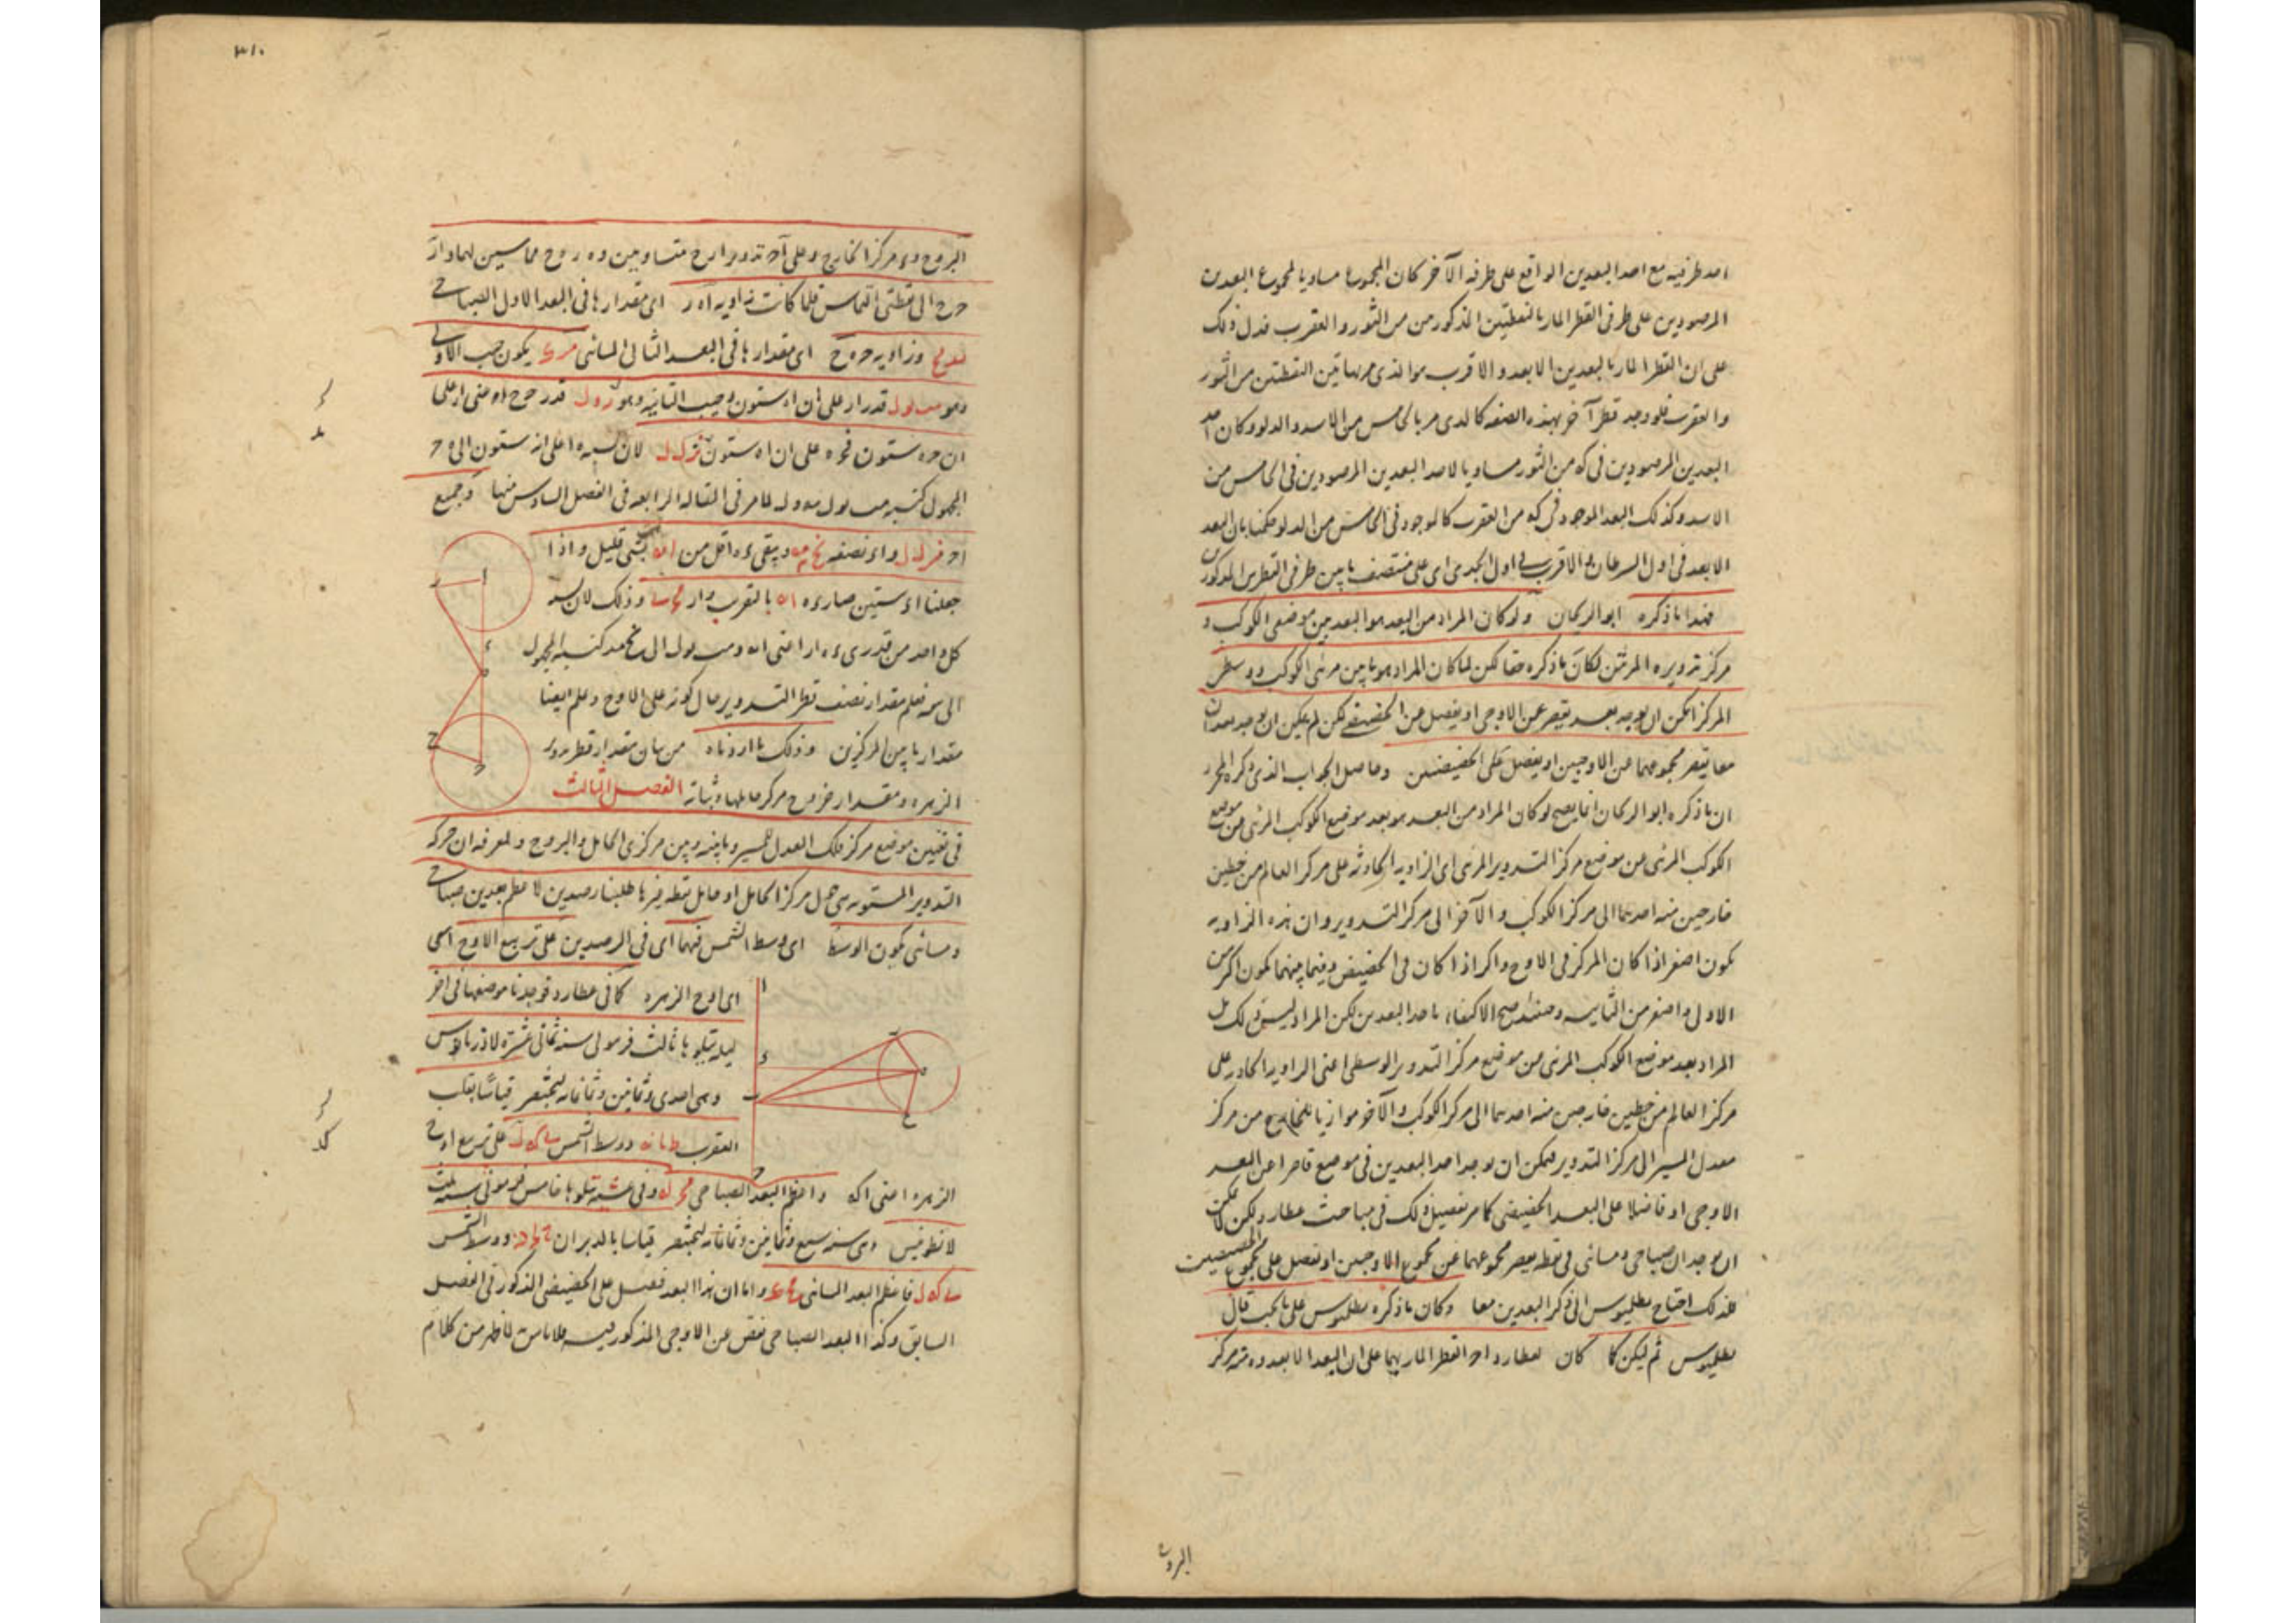 احد طرفيه مع احد البعدين الواقع على طرفه الآخر كان المجموع مساويا لمجموع البعدين
المرصودين على طرفى القطر المار بالنقطتين المذكورتين من الثور والعقرب فدل ذلك
على ان القطر المار بالبعدين الابعد والاقرب هو الذى مر بهاتين النقطتين من الثور
والعقرب فلو وجد قطر آخر بهذه الصفة كالذى مر بالخامس من الاسد والدلو وكان احد
البعدين المرصودين فى كه من الثور مساويا لاحد البعدين المرصودين فى الخامس من
الاسد وكذلك البعد الموجود فى كه من العقرب كالموجود فى الخامس من الدلو حكمنا بان البعد
الابعد فى اول السرطان والاقرب فى اول الجدى اى على منتصف ما بين طرفى القطرين المذكورين
فهذا ما ذكره ابو الريحان ولو كان المراد من البعد هو البعد بين موضعى الكوكب و
مركز تدويره المرئيين لكان ما ذكره حقا لكن لما كان المراد هو ما بين مرئى الكوكب ووسطى
المركز امكن ان يوجد بعد يقصر عن الاوجى او يفضل عن الحضيضى لكن لم يكن ان يوجد بعدان
معا يقصر مجموعهما عن الاوجيين او يفضل على الحضيضيين وحاصل الجواب الذى ذكره المحرر
ان ما ذكره ابو الريحان انما يصح لو كان المراد من البعد هو بعد موضع الكوكب المرئى من موضع
الكوكب المرئى من موضع مركز التدوير المرئى اى الزاوية الحادثة على مركز العالم من خطين
خارجين منه احدهما الى مركز الكوكب والآخر الى مركز التدوير وان هذه الزاوية
تكون اصغر اذا كان المركز فى الاوج واكبر اذا كان فى الحضيض وفيما بينهما تكون اكبر من
الاولى واصغر من الثانية وحينئذ صح الاكتفاء باحد البعدين لكن المراد ليس ذلك بل
المراد بعد موضع الكوكب المرئى من موضع مركز التدوير الوسطى اعنى الزاوية الحادثة على
مركز العالم من خطين خارجين منه احدهما الى مركز الكوكب والآخر موازيا للخارج من مركز
معدل المسير الى مركز التدوير فيمكن ان يوجد احد البعدين فى موضع قاصرا عن البعد
الاوجى او فاضلا على البعد الحضيضى كما مر تفصيل ذلك فى مباحث عطارد ولكن لا يمكن
ان يوجد ان صباحى ومسائى فى نقطة يقصر مجموعهما عن مجموع الاوجيين او يفضل على مجموع الحضيضيين
فلذلك احتاج بطلميوس الى ذكر البعدين معا وكان ما ذكره بطلميوس على ما يجب قال
بطلميوس ثم ليكن كما كان لعطارد اح القطر المار بهما على ان البعد الابعد و ه مركز
البروج
٣١٠
البروج و ء مركز الخارج وعلى آ ح تدويرا رح متساويين و ه ر ه ح مماسين لهما و ار
ح ح الى نقطتى التماس فلما كانت زاوية ا ه ر اى مقدارها فى البعد الاول الصباحى
وزاوية ح ه ح اى مقدارها فى البعد الثانى المسائى يكون جيب الاولى
وهو قدر ار على ان ا ه ستون وجيب الثانية وهو قدر ح ح اعنى ار على
ان ح ه ستون فح ه على ان ا ه ستون لان نسبة ه ا على انه ستون الى ه ح
المجهول كنسبة لما مر فى المقالة الرابعة فى الفصل السادس منها وجميع
ا ح و ا ء نصفه ويبقى ء ه اقل من بشى قليل واذا
جعلنا ا ء ستين صار ء ه بالتقريب و ار وذلك لان نسبة
كل واحد من قدرى ء ه ار اعنى كنسبة المجهول
الى س فعلم مقدار نصف قطر التدوير حال كونه على الاوج وعلم ايضا
مقدار ما بين المركزين وذلك ما اردناه من بيان مقدار قطر تدوير
الزهرة ومقدار خروج مركز حاملها وثباته الفصل الثالث
فى تعيين موضع مركز فلك المعدل للمسير وما بينه وبين مركزى الحامل والبروج ولمعرفة ان حركة
التدوير المستوية هى حول مركز الحامل او حول نقطة غيرها طلبنا رصدين لاعظم بعدين صباحى
ومسائى يكون الوسط اى وسط الشمس فيهما اى فى الرصدين على تربيع الاوج اى
اى اوج الزهرة كما فى عطارد فوجدنا موضعها فى آخر
ليلة يتلوها ثالث فرموثى سنة ثمانى عشرة لادريانوس
وهى احدى وثمانين وثمانمائة لبختنصر قياسا بقلب
العقرب ووسط الشمس على تربيع اوج
الزهرة اعنى اكه واعظم البعد الصباحى وفى عشية يتلوها خامس فرموثى سنة ثلث
لانطونينس وهى سنة سبع وثمانين وثمانمائة لبختنصر قياسا بالدبران ووسط الشمس
فاعظم البعد المسائى واما ان هذا البعد فضل على الحضيضى المذكور فى الفصل
السابق وكذا البعد الصباحى نقص عن الاوجى المذكور فيه فلا بأس لما ظهر من كلام